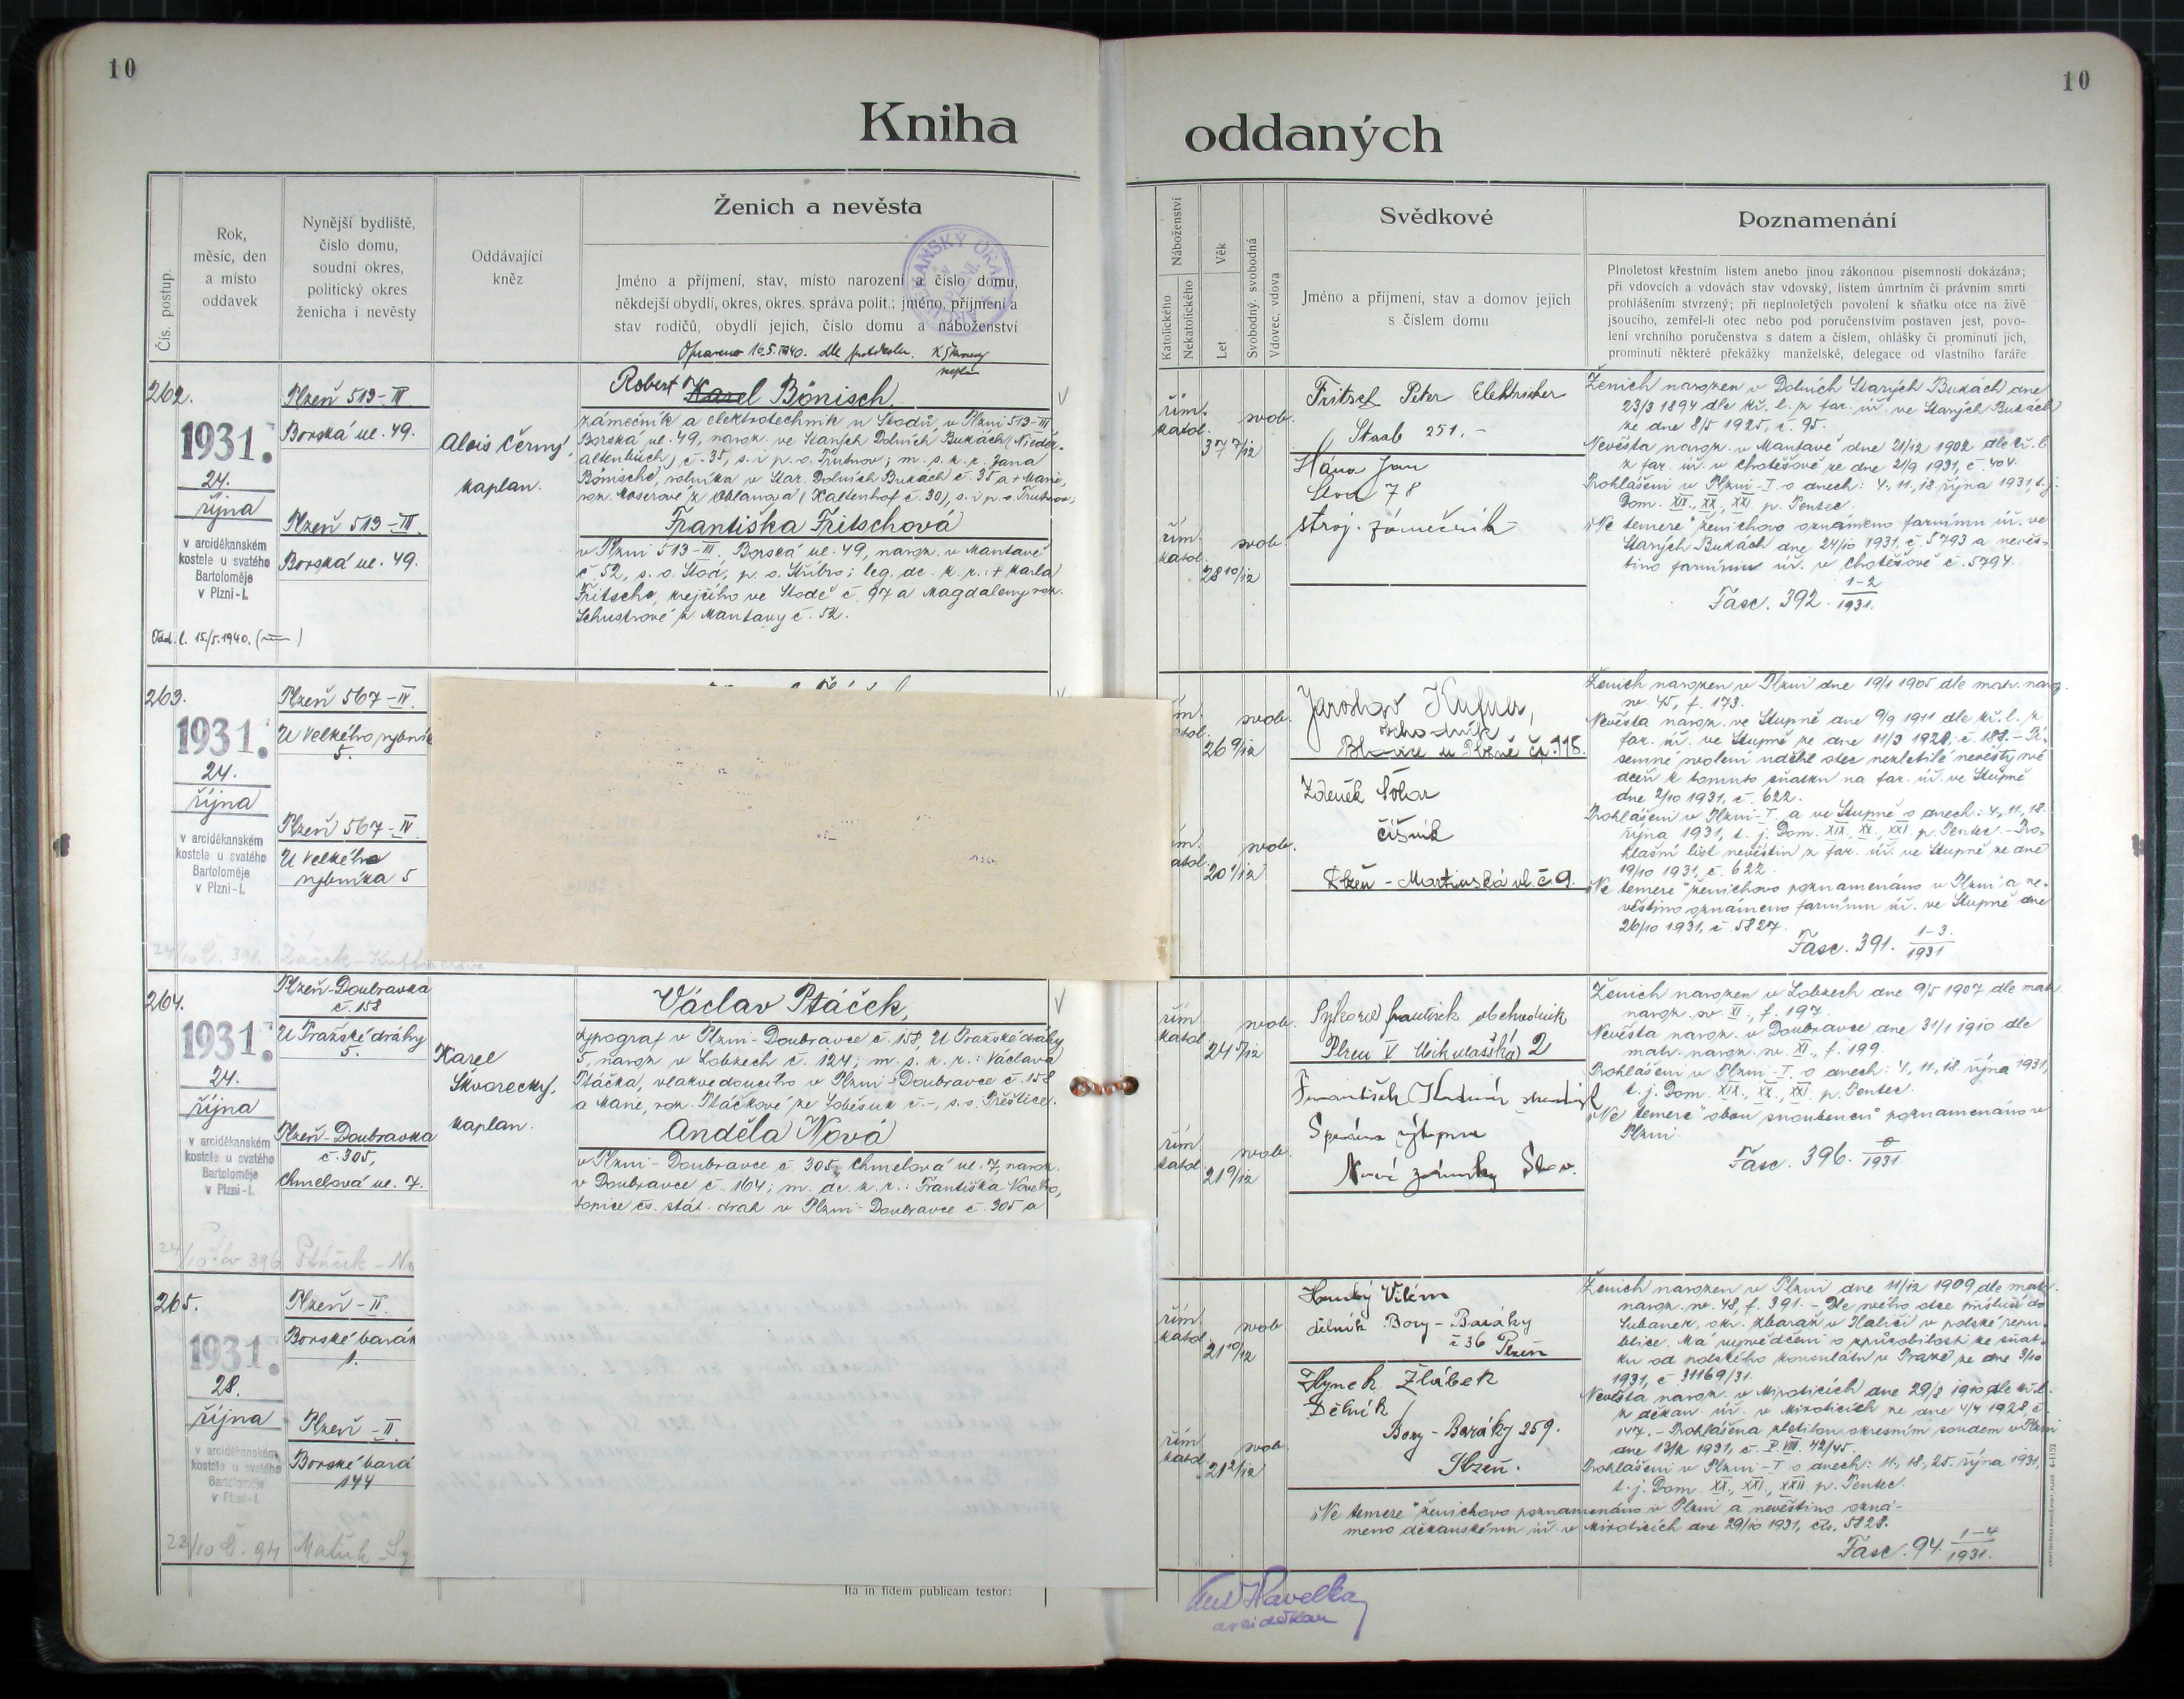 10
10
Kniha
oddaných
Čís. postup.
Rok,
měsíc, den
a místo
oddavek
Nynější bydliště,
číslo domu,
soudní okres,
politický okres
ženicha i nevěsty
Oddávající
kněz
Ženich a nevěsta
Jméno a příjmení, stav, místo narození a číslo domu,
někdejší obydlí, okres, okres. správa polit.; jméno, příjmení a
stav rodičů, obydlí jejich, číslo domu a náboženství
Náboženství
Katolického
Nekatolického
Věk
Let
Svobodný, svobodná
Vdovec, vdova
Svědkové
Jméno a příjmení, stav a domov jejich
s číslem domu
Poznamenání
Plnoletost křestním listem anebo jinou zákonnou písemností dokázána;
při vdovcích a vdovách stav vdovský, listem úmrtním či právním smrti
prohlášením stvrzený; při neplnoletých povolení k sňatku otce na živě
jsoucího, zemřel-li otec nebo pod poručenstvím postaven jest, povo-
lení vrchního poručenstva s datem a číslem, ohlášky či prominutí jich,
prominutí některé překážky manželské, delegace od vlastního faráře
Opraveno 16.5.1940. dle protokolu.
262.
1931.
24.
října
v arciděkanském
kostele u svatého
Bartoloměje
v Plzni-I.
Odd. l. 15/5.1940.
Plzeň 513-III
Borská ul. 49.
Plzeň 513-III.
Borská ul. 49.
Alois Černý,
kaplan.
Robert Karel Bönisch
zámečník a elektrotechnik u Škodů, v Plzni 513-III
Borská ul. 49, naroz. ve Starých Dolních Bukách (Nieder-
altenbuch) č. 35, s. i p. o. Trutnov; m. s. k. r. Jana
Bönische, rolníka v Star. Dolních Bukách č. 35 a + Marie,
roz. Moserové z Oblanova (Kaltenhof č. 30), s. i p. o. Trutnov;
Františka Fritschová
v Plzni 513-III. Borská ul. 49, naroz. v Mantavě
č. 52, s. o. Stod, p. o. Stříbro; leg. dc. k. r.: + Karla
Fritsche, krejčího ve Stodě č. 97 a Magdaleny roz.
Schustrové z Mantavy č. 52.
řím.
katol.
svob.
37 7/12
řím.
katol.
svob.
28 10/12
Fritsch Peter Elektriker
Staab 251.-
Hána Jan
Stod 78
stroj. zámečník
Ženich narozen v Dolních Starých Bukách dne
23/3 1894 dle kř. l. z far. úř. ve Starých Bukách
ze dne 8/5 1925, č. 95.
Nevěsta naroz. v Mantavě dne 21/12 1902 dle kř. l.
z far. úř. v Chotěšově ze dne 21/9 1931, č. 404.
Prohlášeni v Plzni-I. o dnech: 4., 11., 18. října 1931, t. j.
Dom. XIX., XX., XXI. p. Pentec.
„Ne temere" ženichovo oznámeno farnímu úř. ve
Starých Bukách dne 24/10 1931, č. 5793 a nevěs-
tino farnímu úř. v Chotěšově č. 5794.
Fasc. 392. 1-2/1931.
263.
1931.
24.
října
v arciděkanském
kostele u svatého
Bartoloměje
v Plzni-I.
Plzeň 567-IV.
U Velkého rybník
5.
Plzeň 567-IV.
U Velkého
rybníka 5
24/10 Č. 391. Žáček-Kuffnerová
svob.
26 9/12
svob.
20 1/12
Jaroslav Kufner,
obchodník
Blovice u Plzně čp. 118.
Zdeněk
číšník
Plzeň - Martinská ul. č. 9.
Ženich narozen v Plzni dne 19/1 1905 dle matr. naroz.
sv. 45, f. 173.
Nevěsta naroz. ve Stupně dne 9/9 1911 dle kř. l. z
far. úř. ve Stupně ze dne 11/3 1928, č. 188. - Pí-
semné svolení udělil otec nezletilé nevěsty své
dceři k tomuto sňatku na far. úř. ve Stupně
dne 2/10 1931, č. 622.
Prohlášeni v Plzni-I. a ve Stupně o dnech: 4., 11., 18.
října 1931, t. j. Dom. XIX., XX., XXI. p. Pentec. - Pro-
hlašní list nevěstin z far. úř. ve Stupně ze dne
19/10 1931, č. 622.
„Ne temere" ženichovo poznamenáno v Plzni a ne-
věstino oznámeno farnímu úř. ve Stupně dne
26/10 1931, č. 5827.
Fasc. 391. 1-3./1931
264.
1931.
24.
října
v arciděkanském
kostele u svatého
Bartoloměje
v Plzni-I.
Plzeň-Doubravka
č. 158
U Pražské dráhy
5.
Plzeň-Doubravka
č. 305,
Chmelová ul. 7.
24/10 396 Ptáček - No
Karel
Škvorecký,
kaplan.
Václav Ptáček,
typograf v Plzni-Doubravce č. 158, U Pražské dráhy
5, naroz. v Lobzech č. 124; m. s. k. r.: Václava
Ptáčka, vlakvedoucího v Plzni-Doubravce č. 158
a Marie, roz. Ptáčkové ze Soběsuk č. -, s. o. Přeštice.
Anděla Nová
v Plzni-Doubravce č. 305, Chmelová ul. 7, naroz.
v Doubravce č. 164; m. dc. k. r.: Františka Nového,
topiče čs. stát. drah v Plzni-Doubravce č. 305 a
řím.
katol.
svob.
24 5/12
řím.
katol.
svob.
21 9/12
Sýkora František obchodník
Plzeň V Mikulašská 2
František
Nové zámky Slov.
Ženich narozen v Lobzech dne 9/5 1907 dle matr.
naroz. sv. XI., f. 197.
Nevěsta naroz. v Doubravce dne 31/1 1910 dle
matr. naroz. sv. XI., f. 199
Prohlášeni v Plzni-I. o dnech: 4., 11., 18. října 1931,
t. j. Dom. XIX., XX., XXI. p. Pentec.
„Ne temere" obou snoubenců poznamenáno v
Plzni.
Fasc. 396. 0/1931.
265.
1931.
28.
října
v arciděkanském
kostele u svatého
Bartoloměje
v Plzni-I.
Plzeň-II.
Borské barák
1.
Plzeň-II.
Borské bará
144
28/10 Č. 94 Maťuk - Sy
řím.
katol.
svob
21 10/12
řím
katol.
svob.
21 2/12
Vilém
dělník Bory-Baráky
č 36 Plzeň
Hynek Žlábek
Dělník
Bory-Baráky 259.
Plzeň.
Ženich narozen v Plzni dne 11/12 1909 dle matr.
naroz. sv. 48, f. 391. - Dle svého otce přísluší do
Lubanek, okr. Zbaraž v Haliči v polské repu-
blice. Má vysvědčení o způsobilosti ke sňat-
ku od polského konsulátu v Praze ze dne 9/10
1931, č. 31169/31.
Nevěsta naroz. v Miroticích dne 29/8 1910 dle kř. l.
z děkan. úř. v Miroticích ze dne 4/4 1928 č.
147. - Prohlášena zletilou okresním soudem v Plzni
dne 13/2 1931, č. P VIII. 42/45.
Prohlášeni v Plzni-I. o dnech: 11., 18., 25. října 1931,
t. j. Dom. XX., XXI., XXII. p. Pentec.
„Ne temere" ženichovo poznamenáno v Plzni a nevěstino ozná-
meno děkanskému úř. v Miroticích dne 29/10 1931, čís. 5828.
Fasc. 94. 1-4/1931.
Ita in fidem publicam testor:
Havelka
arciděkan